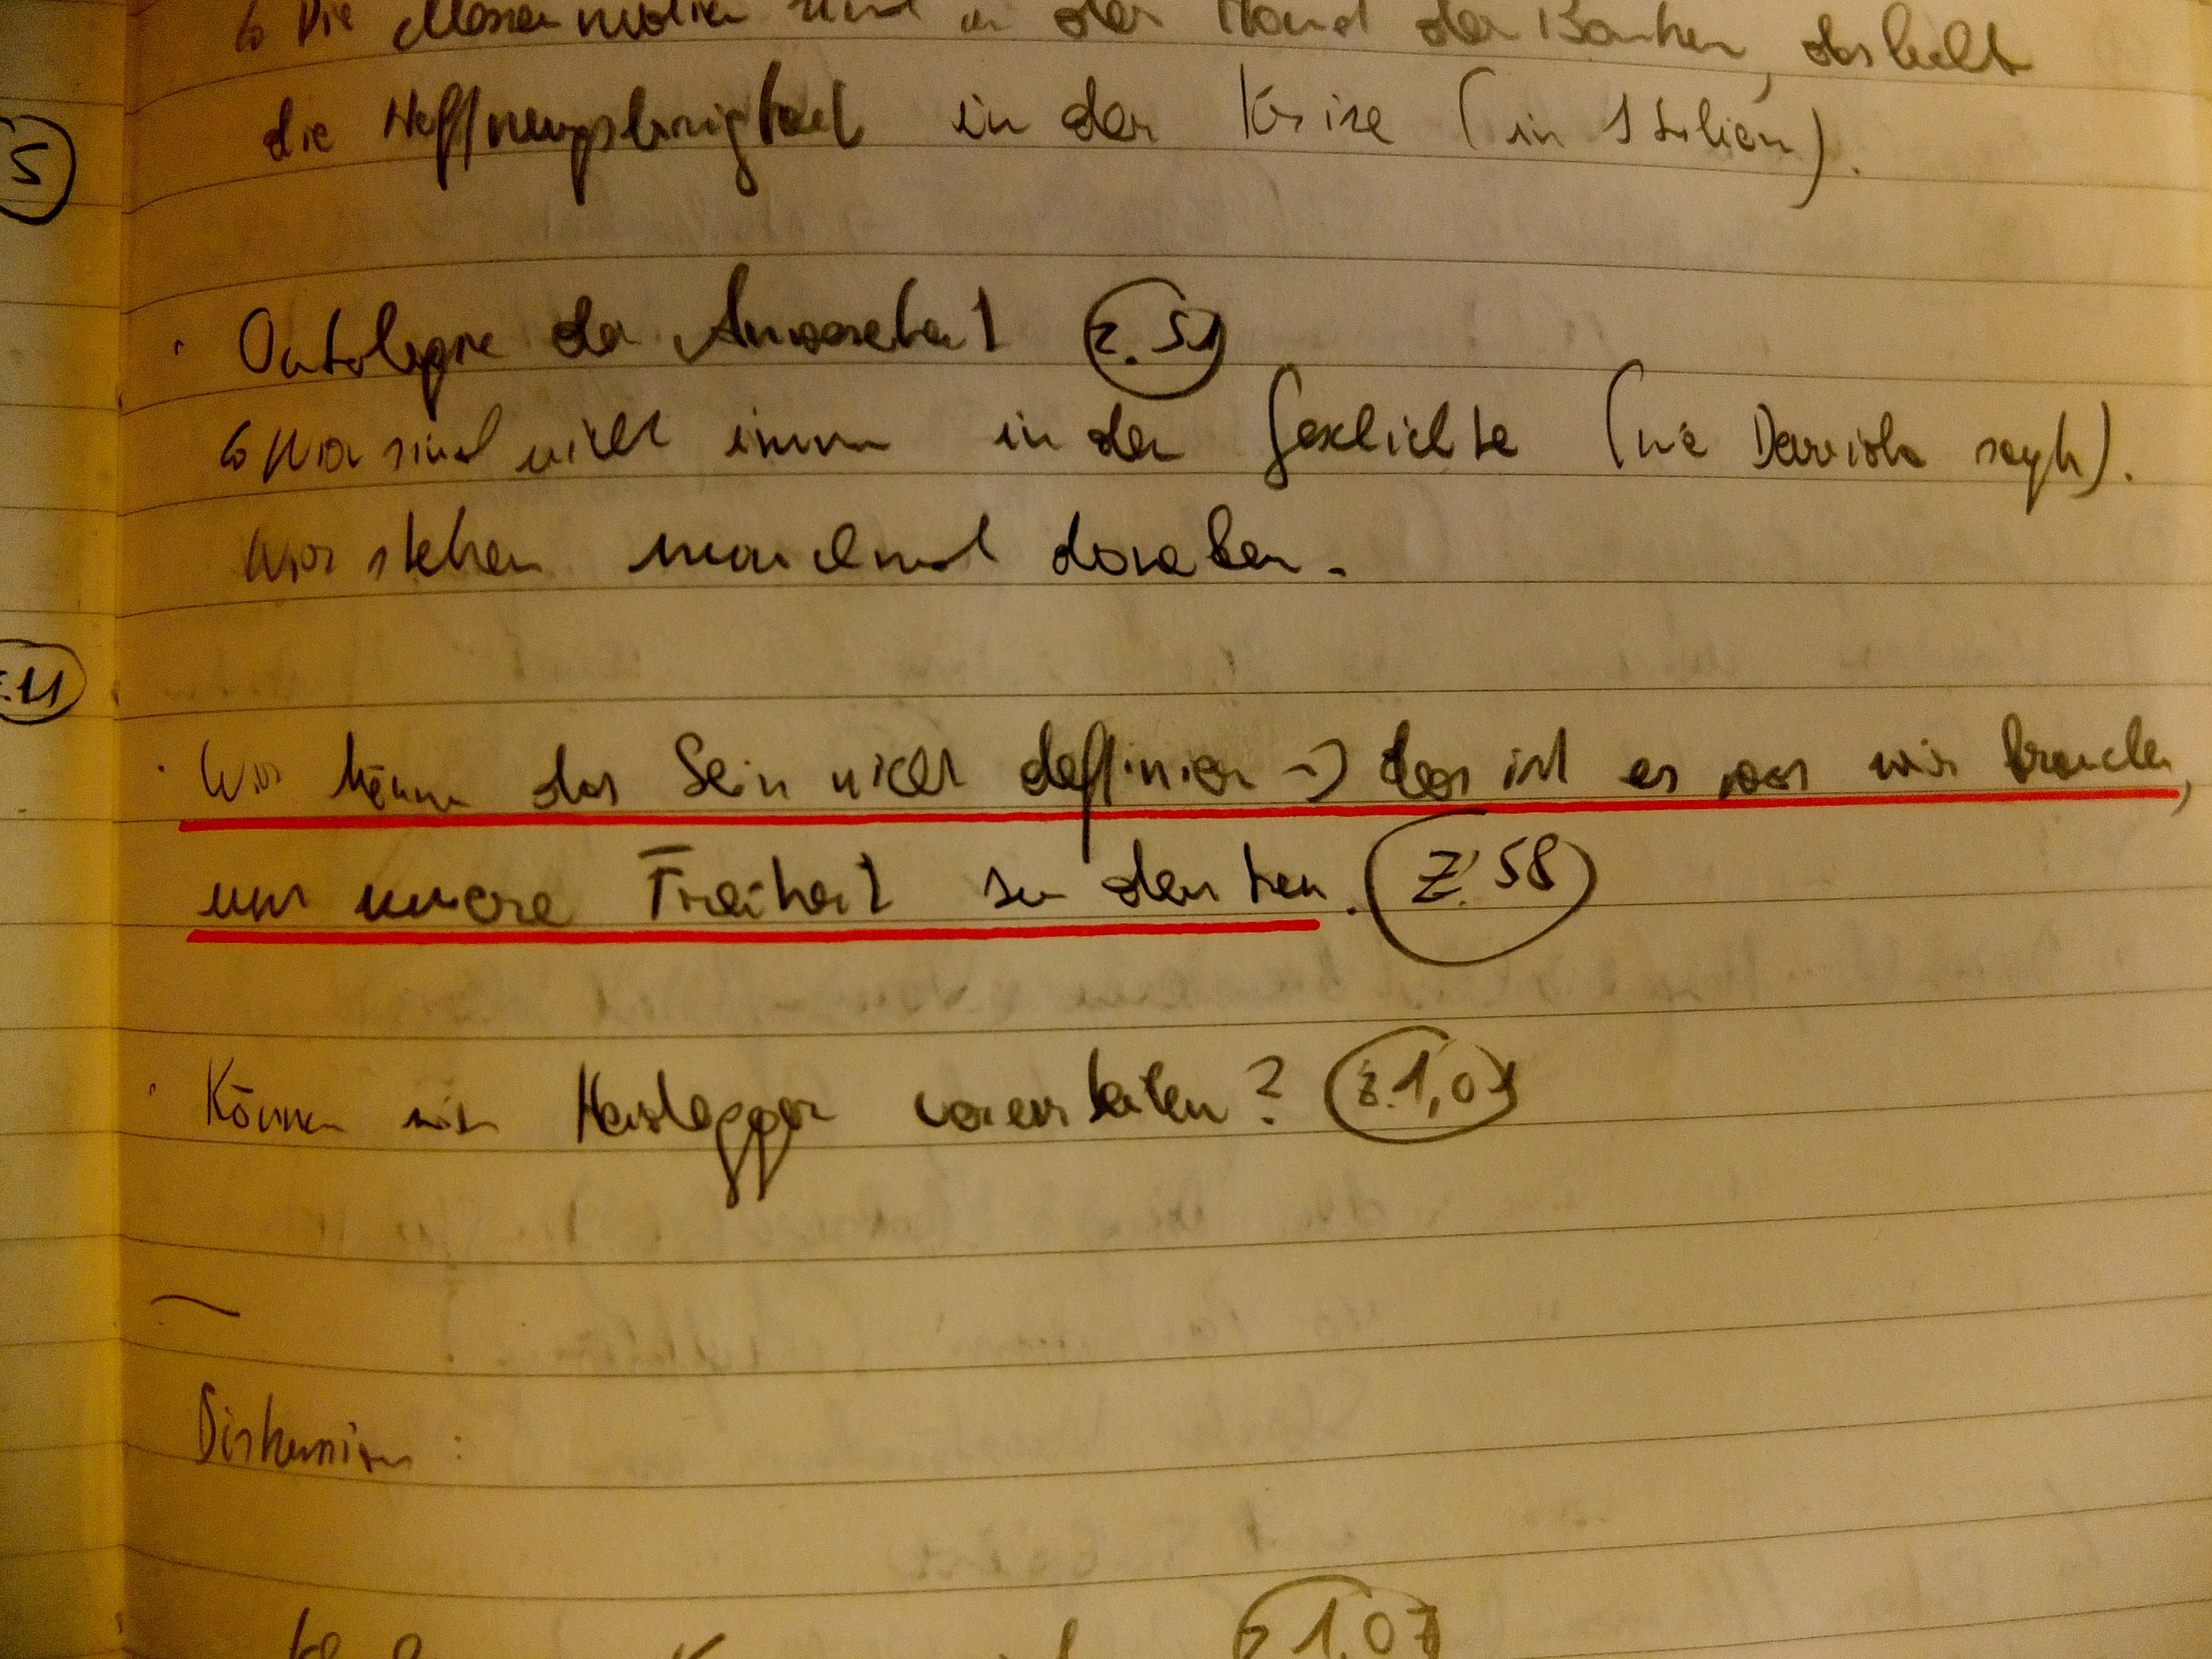 ↳ Die Massenmedien sind in der Hand der Banken, deshalb
die Hoffnungslosigkeit in der Krise (in Italien).
5
· Ontologie der Anwesenheit Z. 51
↳ Wir sind nicht immer in der Geschichte (wie Derrida sagt).
Wir stehen manchmal daneben.
:11
· Wir können das Sein nicht deffinieren → das ist es was wir brauchen,
um unsere Freiheit zu denken. Z. 58
· Können wir Heidegger verurteilen? Z. 1,01
Diskussion:
1,07